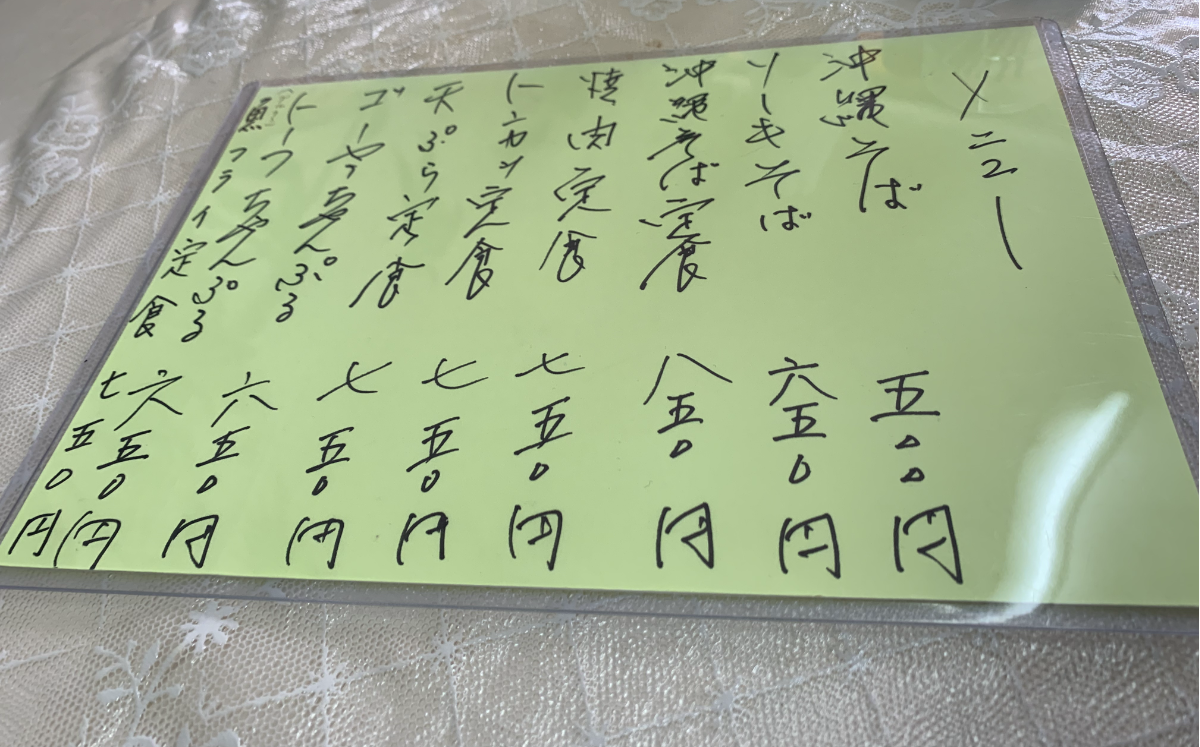 メニュー
沖縄そば 五〇〇円
ソーキそば 六五〇円
沖縄そば定食 八五〇円
焼肉定食 七五〇円
トンカツ定食 七五〇円
天ぷら定食 七五〇円
ゴーヤちゃんぷる 六五〇円
トーフちゃんぷる 六五〇円
魚フライ定食 七五〇円